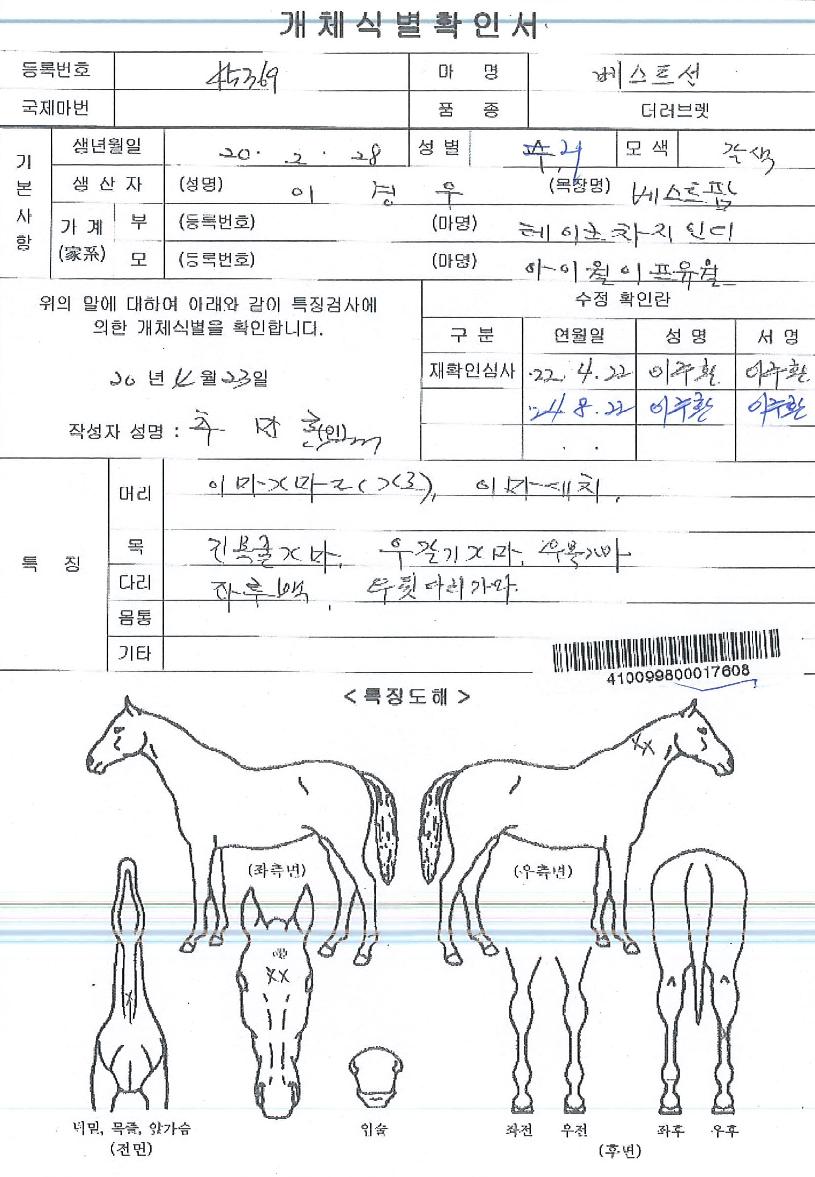 개체식별확인서
등록번호 45369 마 명 베스트선
국제마번 품 종 더러브렛
기본사항
생년월일 20. 2. 28 성별 모색 갈색
생산자 (성명) 이 경 우 (목장명) 베스트팜
가계 (家系) 부 (등록번호) (마명) 테이크차지인디
모 (등록번호) (마명) 아이윌이프유윌
위의 말에 대하여 아래와 같이 특징검사에
의한 개체식별을 확인합니다.
20 년 월 23일
작성자 성명 : (인)
수정 확인란
구 분 연월일 성 명 서 명
재확인심사 22. 4. 22 이주환 이주환
24. 8. 22 이주환 이주환
. .
특 징
머리 이마가마2(가3), 이마새치,
목 긴목줄가마, 우갈기가마, 우목가마
다리 좌후백, 우뒷다리가마.
몸통
기타
410099800017608
<특징도해>
(좌측면) (우측면)
턱밑, 목줄, 앞가슴 입술 좌전 우전 좌후 우후
(전면) (후면)